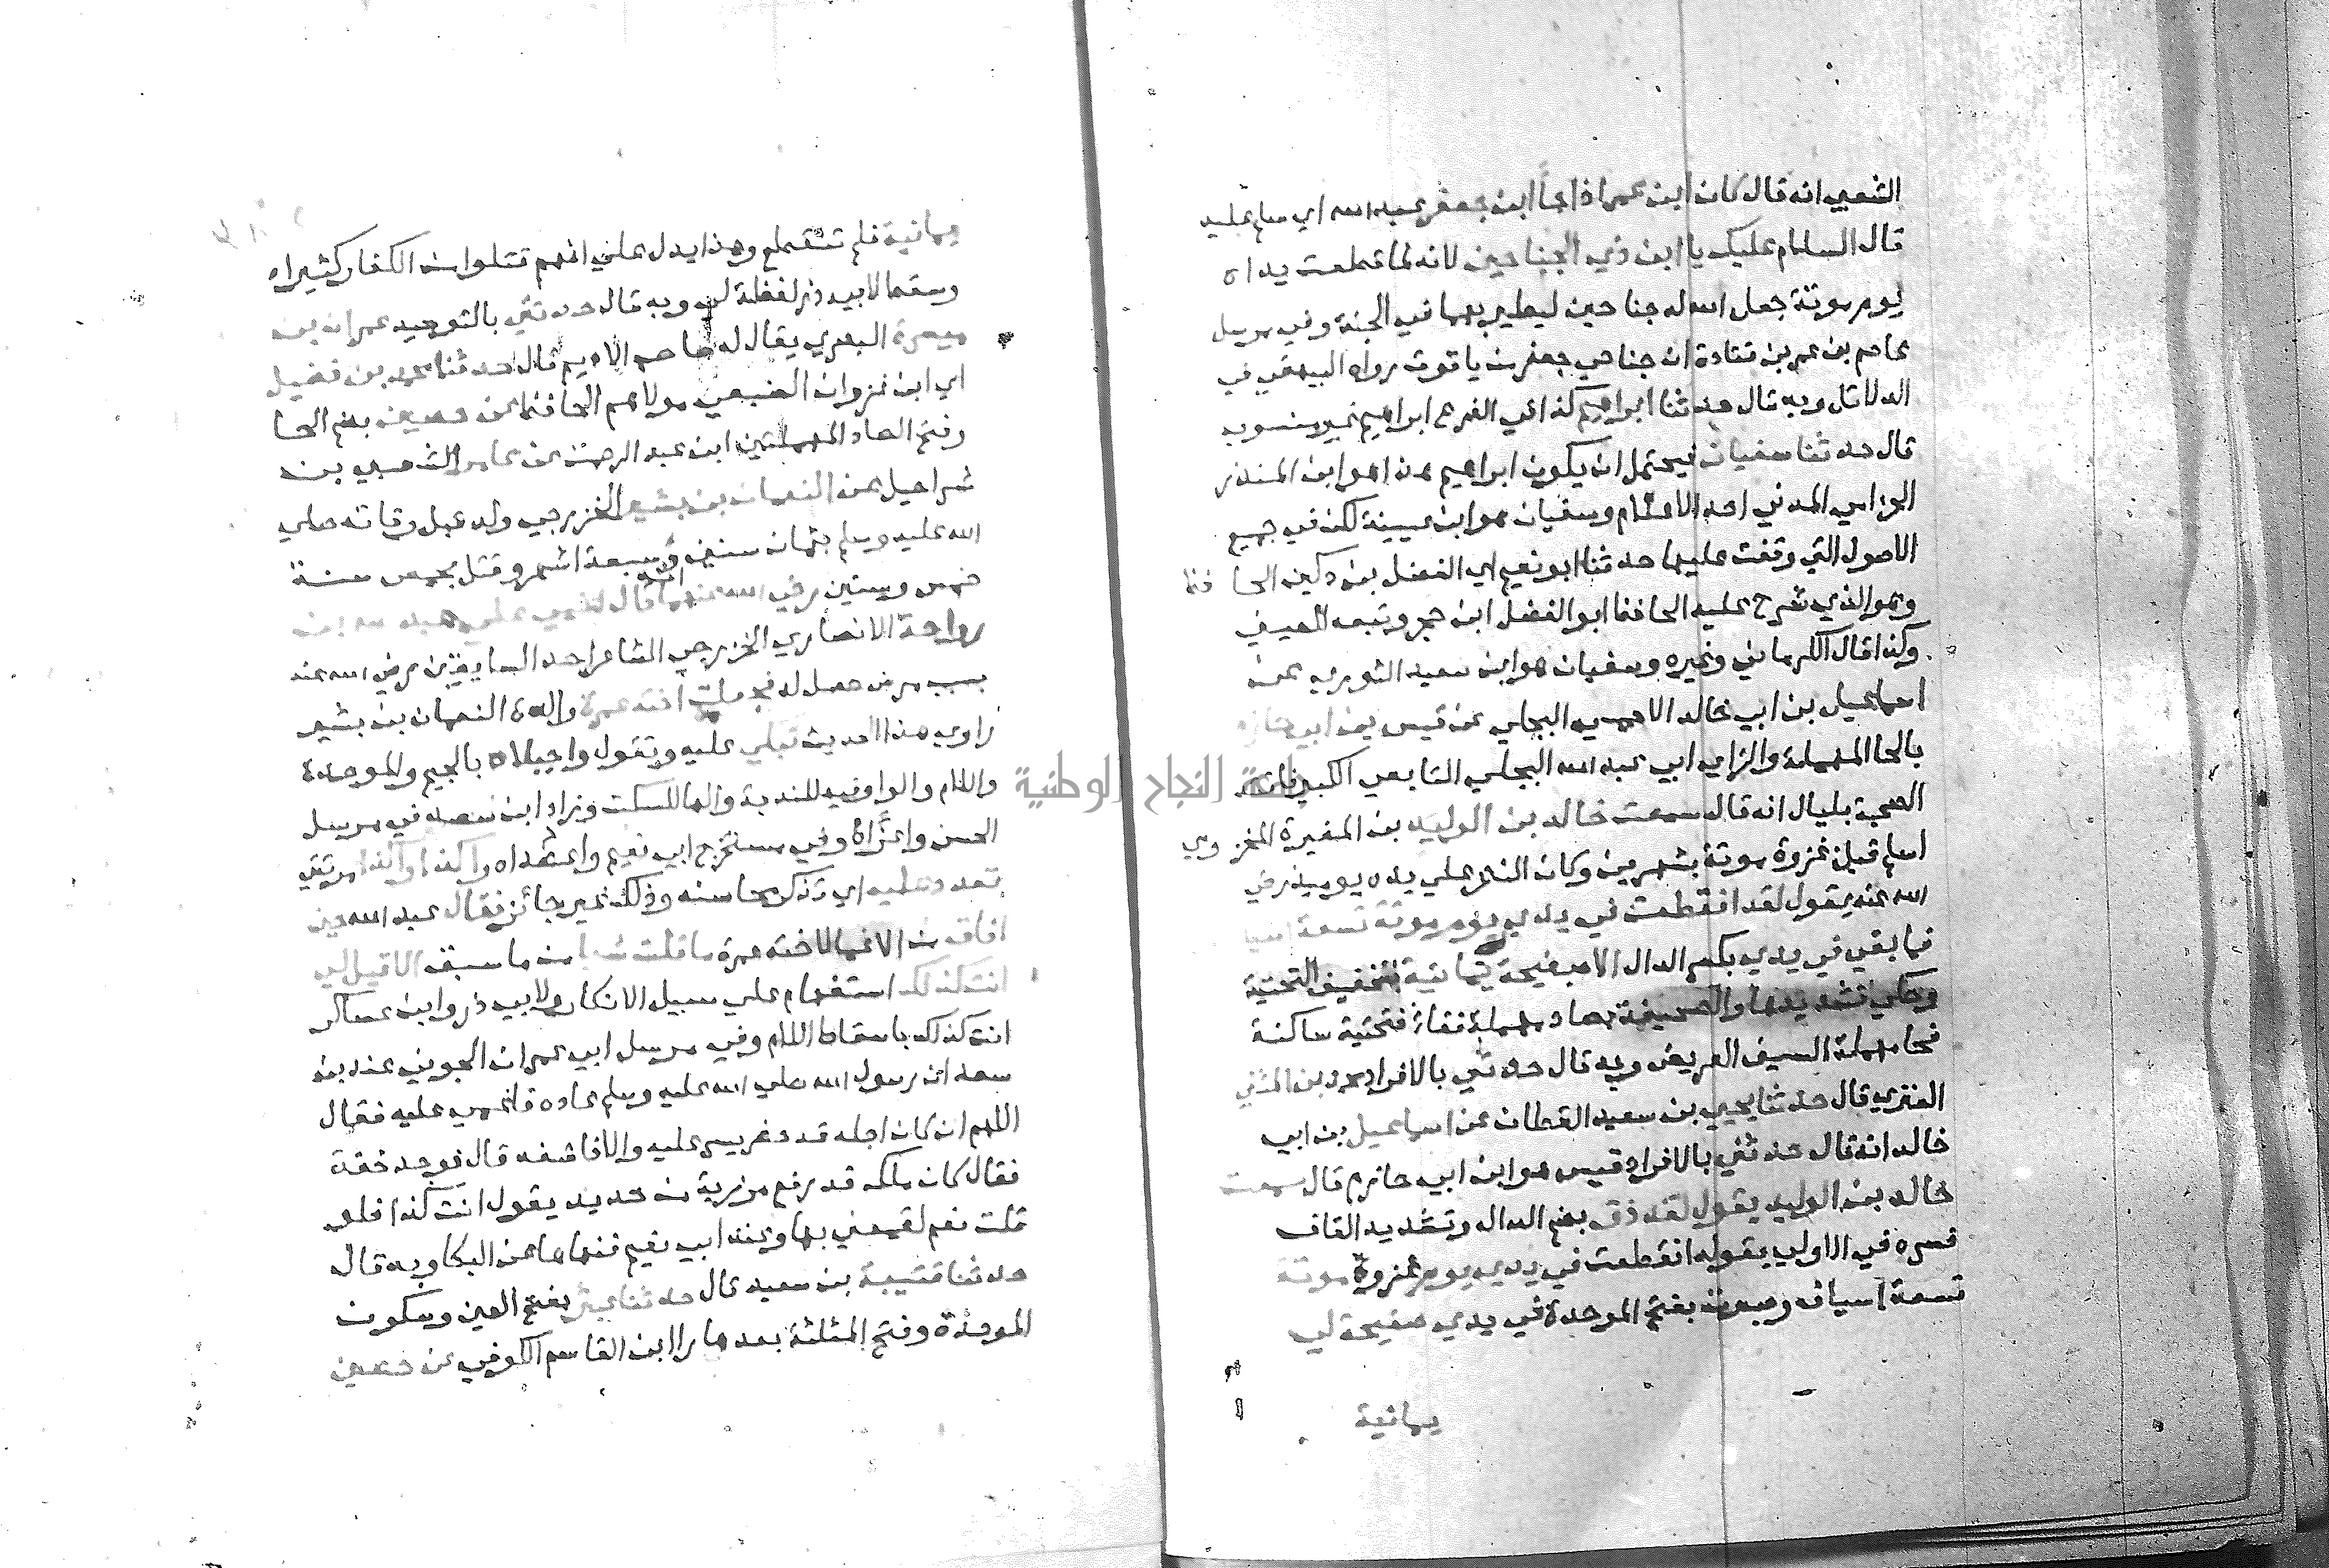 الشعبي انه قال كان ابن عمر اذا حيا ابن جعفر عبد الله اي سلم عليه
قال السلام عليك يا ابن ذي الجناحين لانه لما قطعت يداه
يوم موتة جعل الله له جناحين ليطير بهما في الجنة وفي مرسل
عاصم بن عمر بن قتادة ان جناحي جعفر من ياقوت رواه البيهقي في
الدلائل وبه قال حدثنا ابراهيم كذا في الفرع ابراهيم غير منسوب
قال حدثنا سفيان فيحتمل ان يكون ابراهيم هذا هو ابن المنذر
الحزامي المدني احد الاعلام وسفيان هو ابن عيينة لكن في جميع
الاصول التي وقفت عليها حدثنا ابو نعيم اي الفضل بن دكين الحافظ
وهو الذي شرح عليه الحافظ ابو الفضل ابن حجر وتبعه العيني
وكذا قال الكرماني وغيره وسفيان هو ابن سعيد الثوري عن
اسماعيل بن ابي خالد الاحمسي البجلي عن قيس بن ابي حازم
بالحا المهملة والزاي ابي عبد الله البجلي التابعي الكبير فاتته
الصحبة بليال انه قال سمعت خالد بن الوليد بن المغيرة المخزومي
اسلم قبل غزوة موتة بشهرين وكان النصر علي يده يوميذ رضي
الله عنه يقول لقد انقطعت في يدي يوم موتة تسعة اسياف
فما بقي في يدي بكسر الدال الا صفيحة يمانية بتخفيف التحتية
وحكي تشديدها والصفيحة بصاد مهملة ففاء فتحتية ساكنة
فحا مهملة السيف العريض وبه قال حدثني بالافراد محمد بن المثني
العنزي قال حدثنا يحيي بن سعيد القطان عن اسماعيل بن ابي
خالد انه قال حدثني بالافراد قيس هو ابن ابي حازم قال سمعت
خالد بن الوليد يقول لقد دق بضم الدال وتشديد القاف
فسره في الاولي بقوله انقطعت في يدي يوم غزوة موتة
تسعة اسياف وصبرت بفتح الموحدة في يدي صفيحة لي
يمانية
يمانية فلم تنقطع وهذا يدل علي انهم قتلوا من الكفار كثيرا
وسقط لابي ذر لفظة لي وبه قال حدثني بالتوحيد عمران بن
ميسرة البصري يقال له صاحب الاديم قال حدثنا محمد بن فضيل
اي ابن غزوان الضبعي مولاهم الحافظ عن حصين بضم الحا
وفتح الصاد المهملتين ابن عبد الرحمن عن عامر الشعبي بن
شراحيل عن النعمان بن بشير الخزرجي ولد قبل وفاته صلي
الله عليه وسلم بثمان سنين وسبعة اشهر وقتل بحمص سنة
خمس وستين رضي الله عنهما انه قال اغمي علي عبد الله بن
رواحة الانصاري الخزرجي الشاعر احد السابقين رضي الله عنه
بسبب مرض حصل له فجعلت اخته عمرة والدة النعمان بن بشير
راوي هذا الحديث تبكي عليه وتقول واجبلاه بالجيم والموحدة
واللام والواو فيه للندبة والها للسكت وزاد ابن سعد في مرسل
الحسن واعزاه وفي مستخرج ابي نعيم واعضداه واكذا واكذا مرتين
تعدد عليه اي تذكر محاسنه وذلك غير جائز فقال عبد الله حين
افاق من الاغما لاخته عمرة ما قلت شيا من ما سبق الا قيل لي
انت كذلك استفهام علي سبيل الانكار ولابي ذر وابن عساكر
انت كذلك باسقاط اللام وفي مرسل ابي عمران الجوني عند ابن
سعد ان رسول الله صلي الله عليه وسلم عاده فاغمي عليه فقال
اللهم ان كان اجله قد حضر يسر عليه والا فاشفه قال فوجد خفة
فقال كان ملك قد رفع مرزبة من حديد يقول انت كذا فلو
قلت نعم لقمعني بها وعند ابي نعيم فنهاها عن البكا وبه قال
حدثنا قتيبة بن سعيد قال حدثنا عبثر بفتح العين وسكون
الموحدة وفتح المثلثة بعدها را ابن القاسم الكوفي عن حصين
جامعة النجاح الوطنية